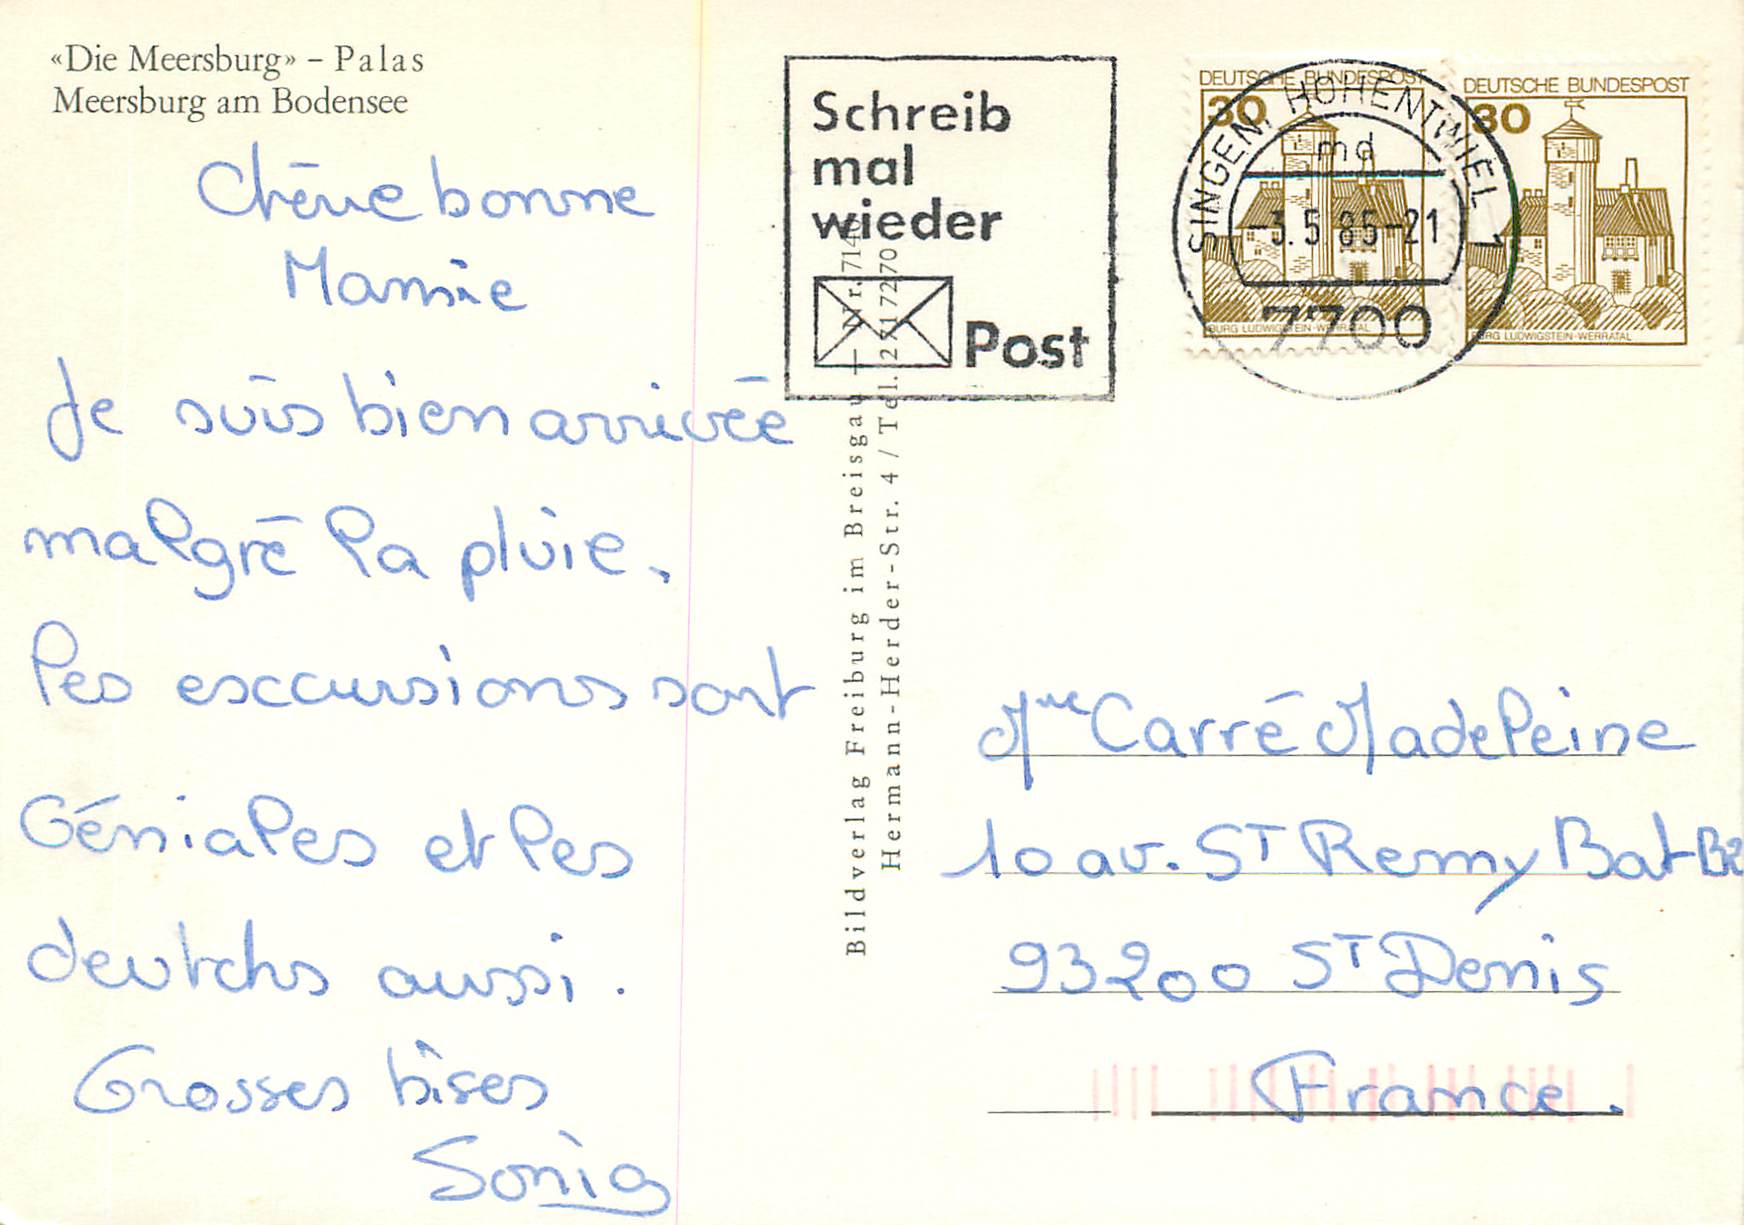 «Die Meersburg» – Palas
Meersburg am Bodensee
Chère bonne
Mamie
Je suis bien arrivée
malgré la pluie.
les excursions sont
Géniales et les
deutchs aussi.
Grosses bises
Sonia
Bildverlag Freiburg im Breisgau –
Hermann-Herder-Str. 4 / Tel. 2717270
Schreib
mal
wieder
Post
DEUTSCHE BUNDESPOST
30
BURG LUDWIGSTEIN-WERRATAL
DEUTSCHE BUNDESPOST
30
BURG LUDWIGSTEIN-WERRATAL
SINGEN, HOHENTWIEL 1
md
-3.5.85-21
7700
Mme Carré Madeleine
10 av. ST Remy Bat B2
93200 ST Denis
France.